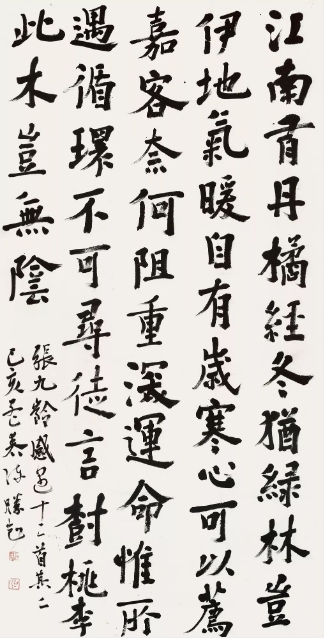 江南有丹橘經冬猶緑林豈
伊地氣暖自有歲寒心可以薦
嘉客奈何阻重深運命惟所
遇循環不可尋徒言樹桃李
此木豈無陰
張九齡感遇十二首其二
己亥孟春陳勝